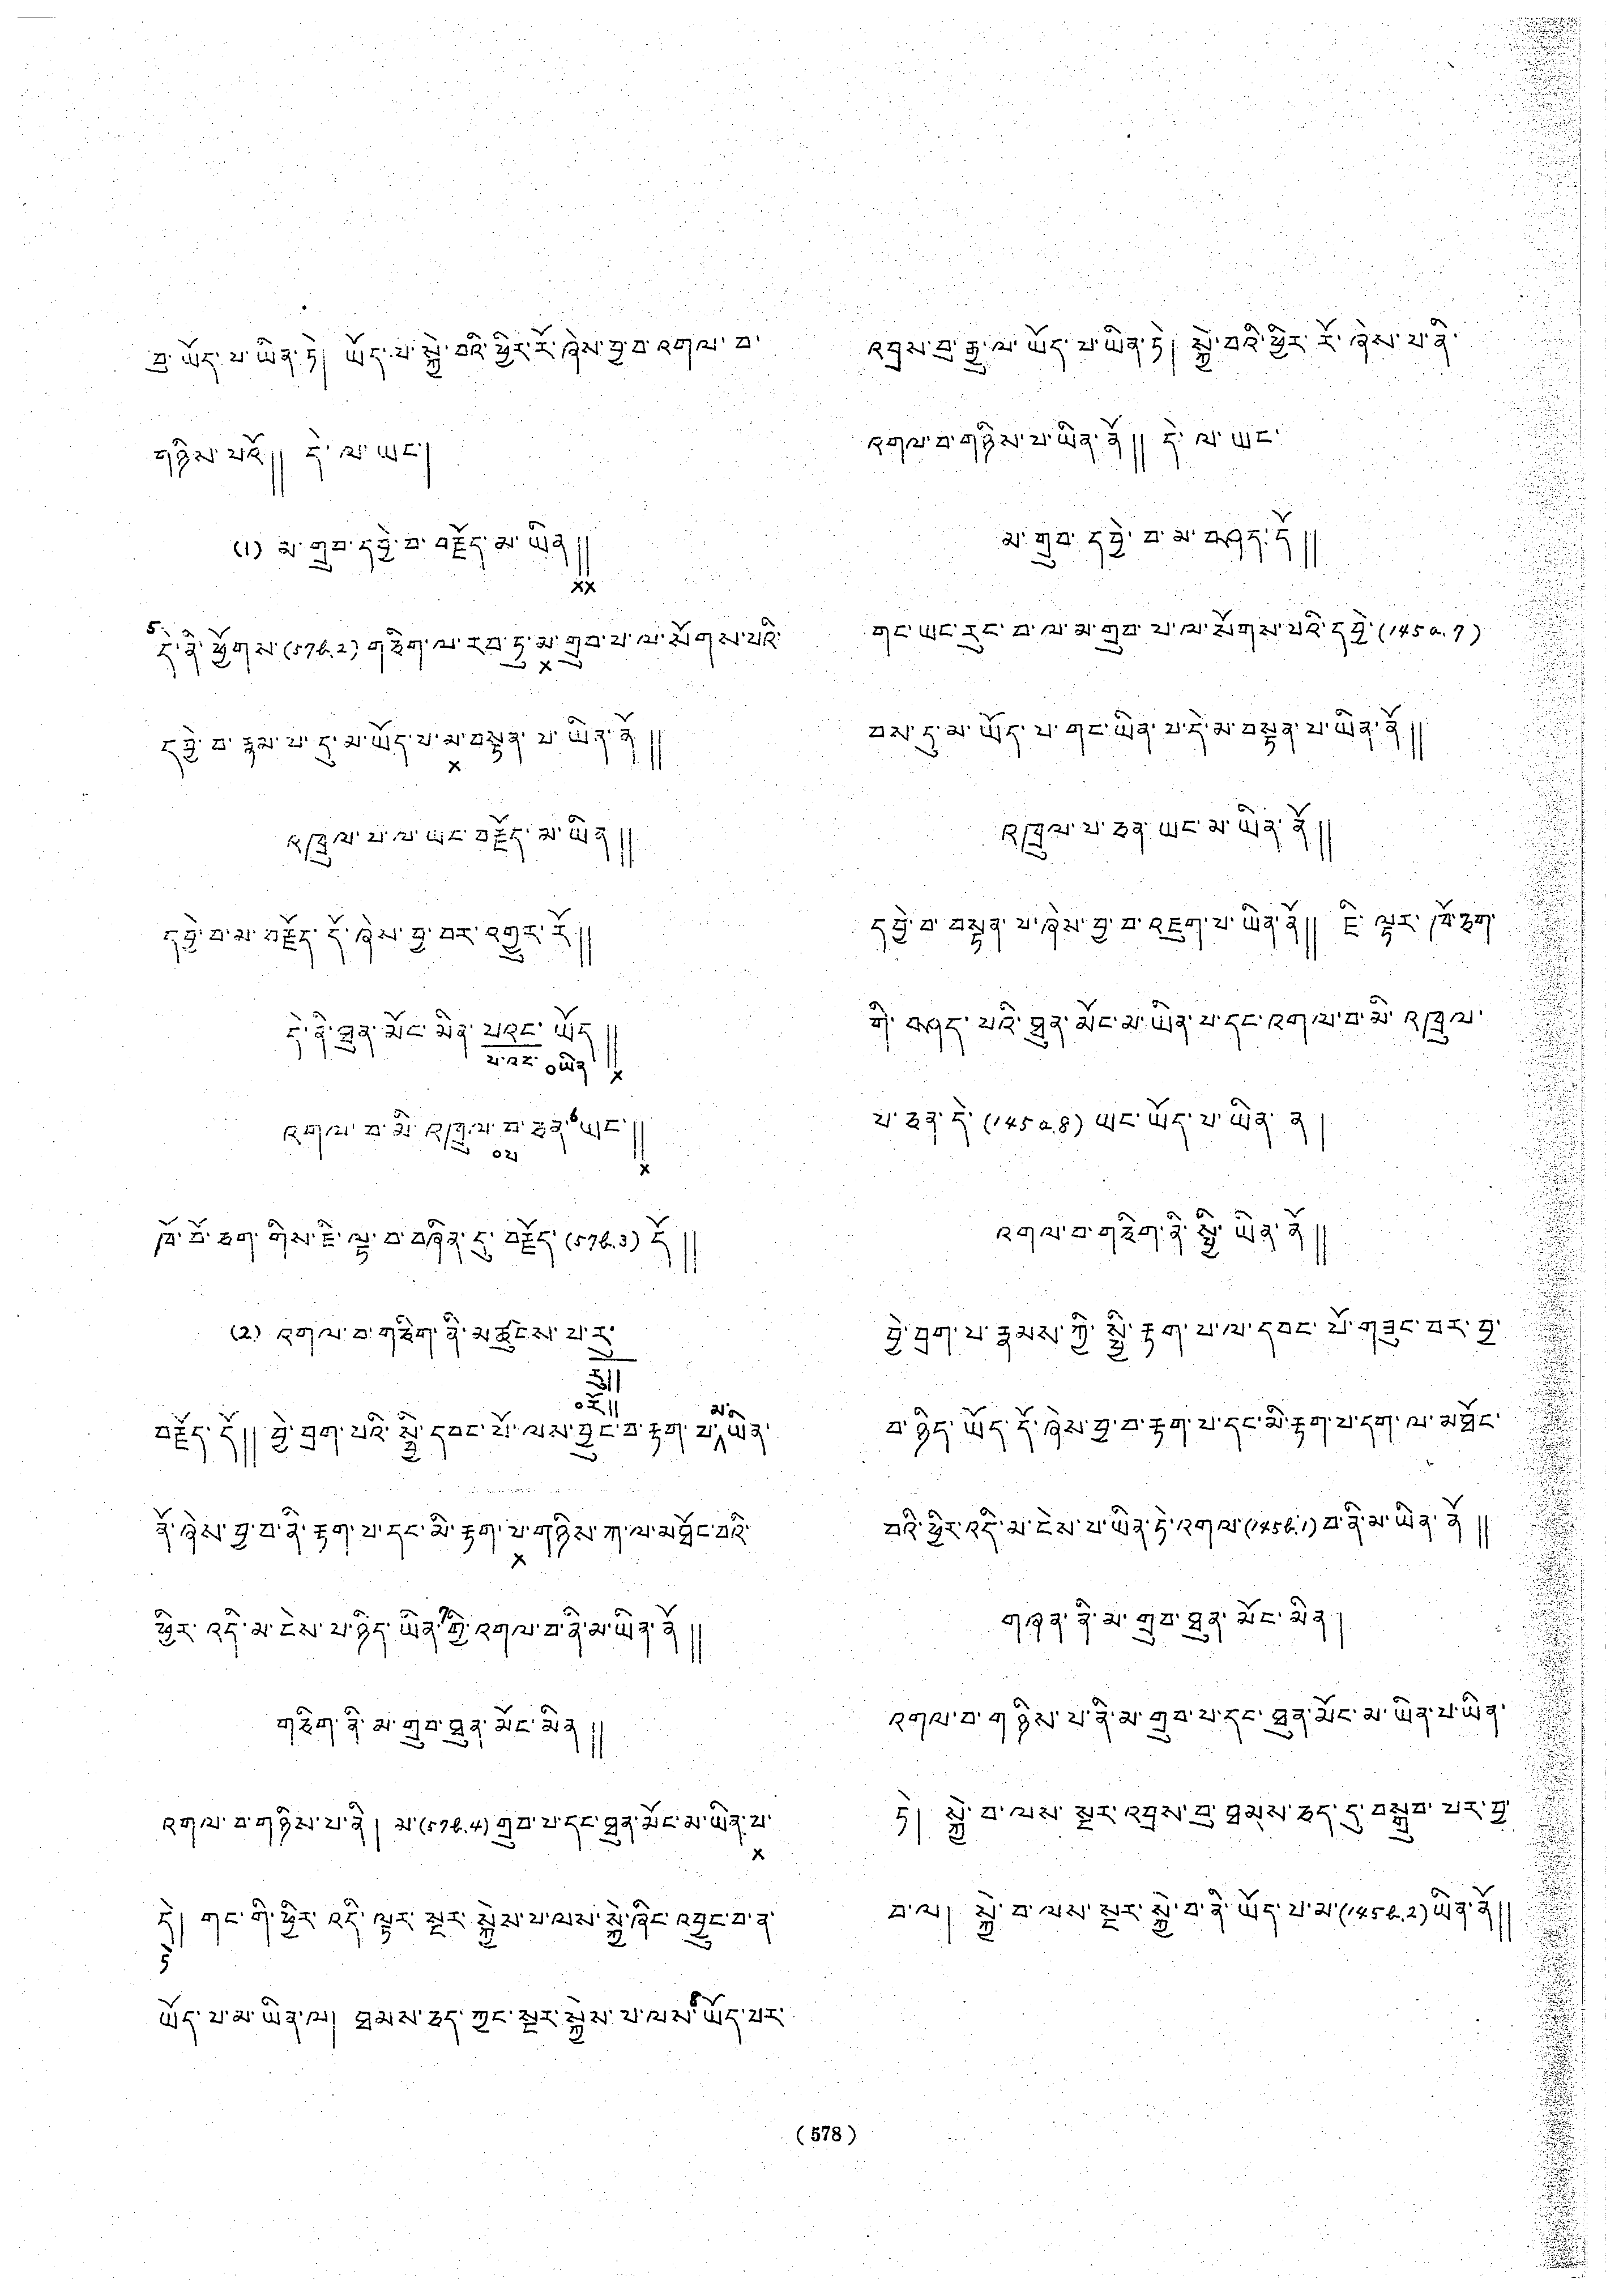 བུ་ཡོད་པ་ཡིན་ཏེ། ཡོད་པ་སྐྱེ་བའི་ཕྱིར་རོ་ཞེས་བྱ་བ་འགལ་བ་
གཉིས་པའོ།། དེ་ལ་ཡང་།
(1) མ་གྲུབ་དབྱེ་བ་བརྗོད་མ་ཡིན།།
××
5 དེ་ནི་ཕྱོགས་(57b.2)གཅིག་ལ་རབ་ཏུ་མ་གྲུབ་པ་ལ་སོགས་པའི་
×
དབྱེ་བ་རྣམ་པ་དུ་མ་ཡོད་པ་མ་བསྟན་པ་ཡིན་ནོ།།
×
འཁྲུལ་པ་ལ་ཡང་བརྗོད་མ་ཡིན།།
དབྱེ་བ་མ་བརྗོད་དོ་ཞེས་བྱ་བར་འགྱུར་རོ།།
དེ་ནི་ཐུན་མོང་མིན་པའང་ཡོད།།
པ་འང་ ०ཡིན ×
འགལ་བ་མི་འཁྲུལ་བ་ཅན་6ཡང་།།
०པ ×
ཁོ་བོ་ཅག་གིས་ཇི་ལྟ་བ་བཞིན་དུ་བརྗོད་(57b.3)དོ།།
(2) འགལ་བ་གཅིག་ནི་མཚུངས་པ་རུ་
ཅི།།
०ངོ།།
མ་
བརྗོད་དོ།། བྱེ་བྲག་པའི་སྤྱི་དབང་པོ་ལས་བྱུང་བ་རྟག་པ་ཡིན་
ནོ་ཞེས་བྱ་བ་ནི་རྟག་པ་དང་མི་རྟག་པ་གཉིས་ཀ་ལ་མཐོང་བའི་
×
ཕྱིར་འདི་མ་ངེས་པ་ཉིད་ཡིན་7གྱི་འགལ་བ་ནི་མ་ཡིན་ནོ།།
གཅིག་ནི་མ་གྲུབ་ཐུན་མོང་མིན།།
འགལ་བ་གཉིས་པ་ནི། མ་(57b.4)གྲུབ་པ་དང་ཐུན་མོང་མ་ཡིན་པ་
×
དེ། གང་གི་ཕྱིར་འདི་ལྟར་སྔར་སྐྱེས་པ་ལས་སྐྱེ་ཞིང་འབྱུང་བ་ན་
ཏེ
ཡོད་པ་མ་ཡིན་ལ། ཐམས་ཅད་ཀྱང་སྔར་སྐྱེས་པ་ལས་8ཡོད་པར་
འབྲས་བུ་རྒྱུ་ལ་ཡོད་པ་ཡིན་ཏེ། སྐྱེ་བའི་ཕྱིར་རོ་ཞེས་པ་ནི་
འགལ་བ་གཉིས་པ་ཡིན་ནོ།། དེ་ལ་ཡང་
མ་གྲུབ་དབྱེ་བ་མ་བཤད་དོ།།
གང་ཡང་རུང་བ་ལ་མ་གྲུབ་པ་ལ་སོགས་པའི་དབྱེ་(145a.7)
བས་དུ་མ་ཡོད་པ་གང་ཡིན་པ་དེ་མ་བསྟན་པ་ཡིན་ནོ།།
འཁྲུལ་པ་ཅན་ཡང་མ་ཡིན་ནོ།།
དབྱེ་བ་བསྟན་པ་ཞེས་བྱ་བ་འཇུག་པ་ཡིན་ནོ།། ཇི་ལྟར་ཁོ་ཅག་
གི་བཤད་པའི་ཐུན་མོང་མ་ཡིན་པ་དང་འགལ་བ་མི་འཁྲུལ་
པ་ཅན་དེ་(145a.8)ཡང་ཡོད་པ་ཡིན་ན།
འགལ་བ་གཅིག་ནི་སྤྱི་ཡིན་ནོ།།
བྱེ་བྲག་པ་རྣམས་ཀྱི་སྤྱི་རྟག་པ་ལ་དབང་པོ་གཟུང་བར་བྱ་
བ་ཉིད་ཡོད་དོ་ཞེས་བྱ་བ་རྟག་པ་དང་མི་རྟག་པ་དག་ལ་མཐོང་
བའི་ཕྱིར་འདི་མ་ངེས་པ་ཡིན་ཏེ་འགལ་(145b.1)བ་ནི་མ་ཡིན་ནོ།།
གཞན་ནི་མ་གྲུབ་ཐུན་མོང་མིན།
འགལ་བ་གཉིས་པ་ནི་མ་གྲུབ་པ་དང་ཐུན་མོང་མ་ཡིན་པ་ཡིན་
ཏེ། སྐྱེ་བ་ལས་སྔར་འབྲས་བུ་ཐམས་ཅད་དུ་བསྒྲུབ་པར་བྱ་
བ་ལ། སྐྱེ་བ་ལས་སྔར་སྐྱེ་བ་ནི་ཡོད་པ་མ་(145b.2)ཡིན་ནོ།།
(578)